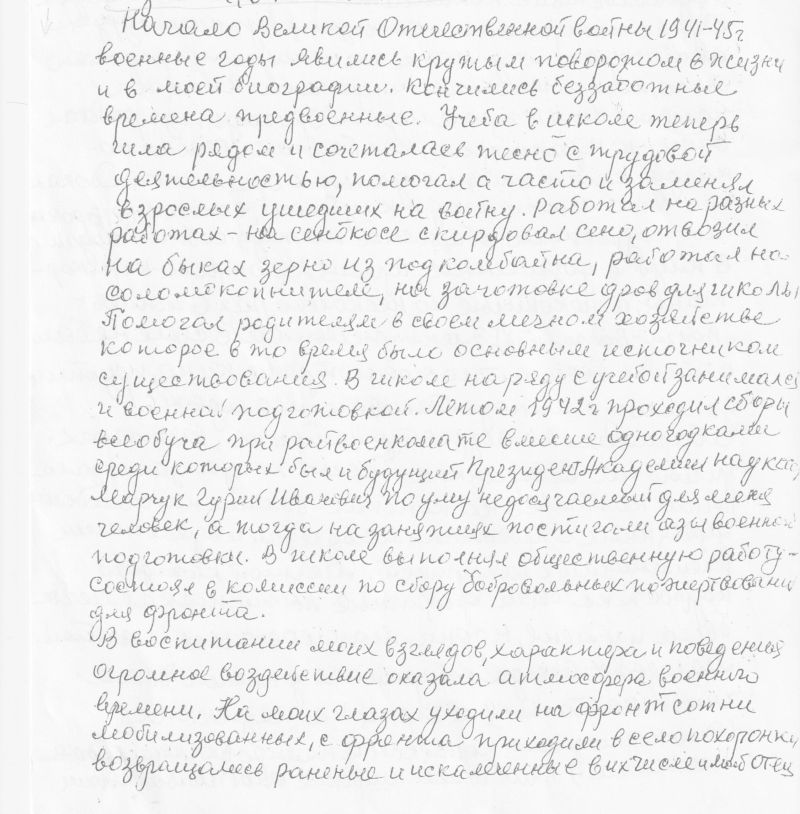 Начало Великой Отечественной войны 1941-45г
военные годы явились крутым поворотом в жизни
и в моей биографии. Кончились беззаботные
времена предвоенные. Учеба в школе теперь
шла рядом и сочеталась тесно с трудовой
деятельностью, помогал а часто и заменял
взрослых ушедших на войну. Работал на разных
работах - на сенокосе скирдовал сено, отвозил
на быках зерно из под комбайна, работал на
соломокопнителе, на заготовке дров для школы
Помогал родителям в своем личном хозяйстве
которое в то время было основным источником
существования. В школе наряду с учебой занимался
и военной подготовкой. Летом 1942г проходил сборы
всеобуча при райвоенкомате вместе одногодками
среди которых был и будущий Президент Академии наук
Марчук Гурий Иванович по уму недосягаемый для меня
человек, а тогда на занятиях постигали азы военной
подготовки. В школе выполнял общественную работу-
состоял в комиссии по сбору добровольных пожертвований
для фронта.
В воспитании моих взглядов, характера и поведения
огромное воздействие оказала атмосфера военного
времени. На моих глазах уходили на фронт сотни
мобилизованных, с фронта приходили в село похоронки
возвращались раненые и искалеченные в их числе и мой отец